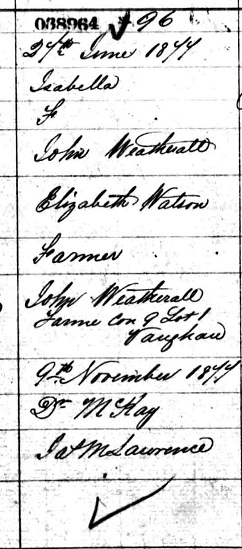 038964 96
27th June 1877
Isabella
F
John Weatherall
Elizabeth Watson
Farmer
John Weatherall
Farmer Con 9 Lot 1
Vaughan
9th November 1877
Dr McKay
Jas McLawrence